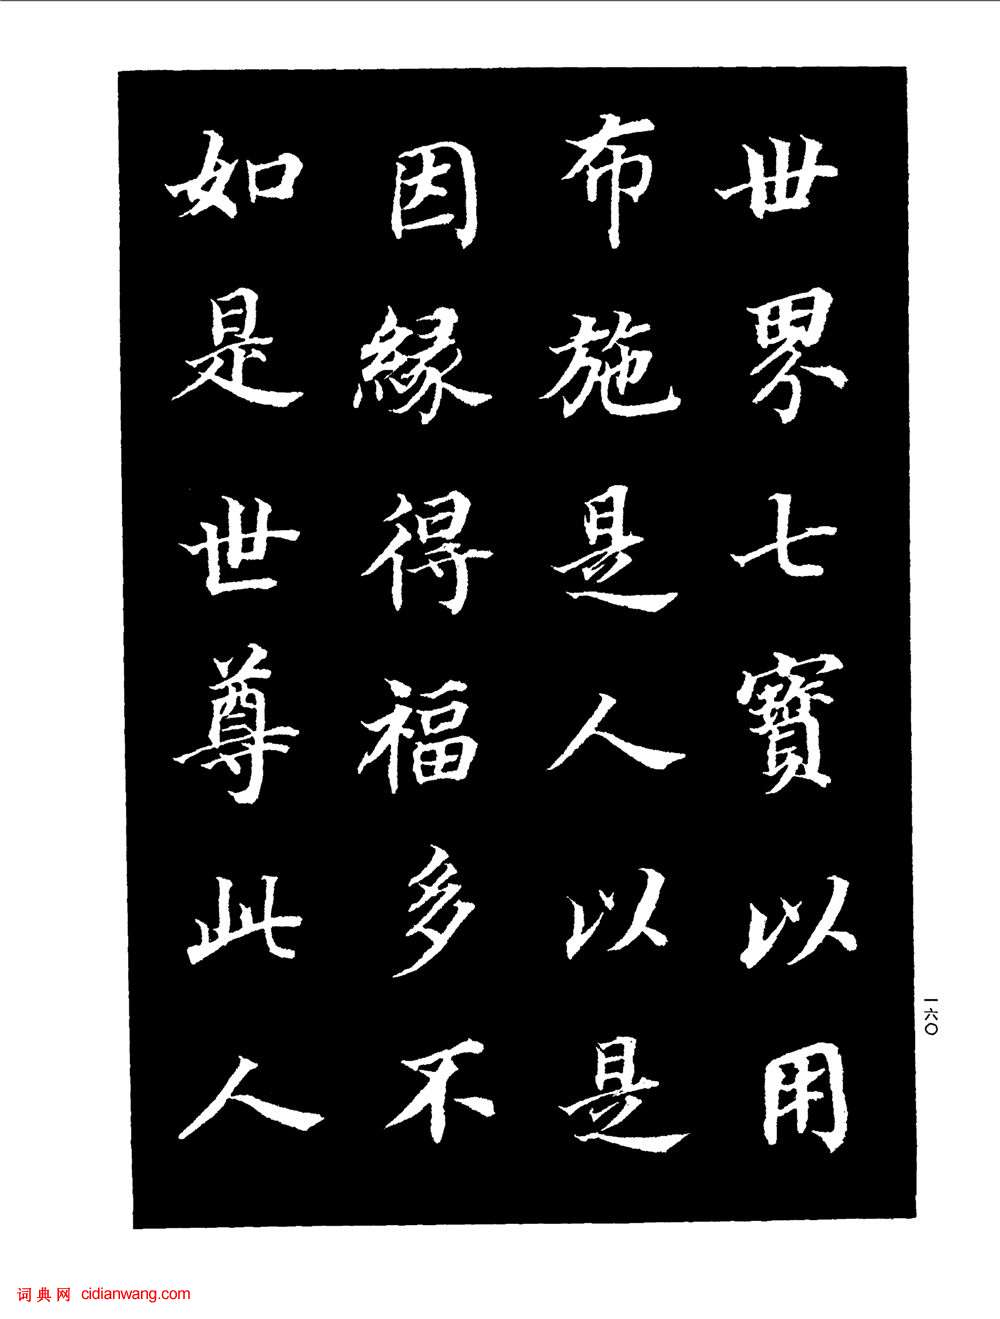 世界七寶以用
布施是人以是
因緣得福多不
如是世尊此人
一六〇
词典网 cidianwang.com